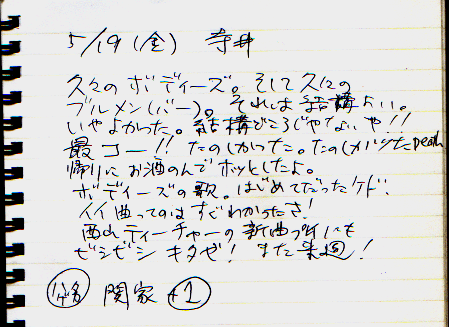 5/19(金) 寺井
久々のボディーズ。そして久々の
ブルメン(バー)。それは結構よい。
いやよかった。結構どころじゃないや!!
最コー!! たのしかった。たのしかった
帰りにお酒のんでホッとしたよ。
ボディーズの歌。はじめてだったケド、
イイ曲ってのはすぐわかったさ!
西山ティーチャーの新曲
ビシビシ キタゼ! また来週!
関家 +1